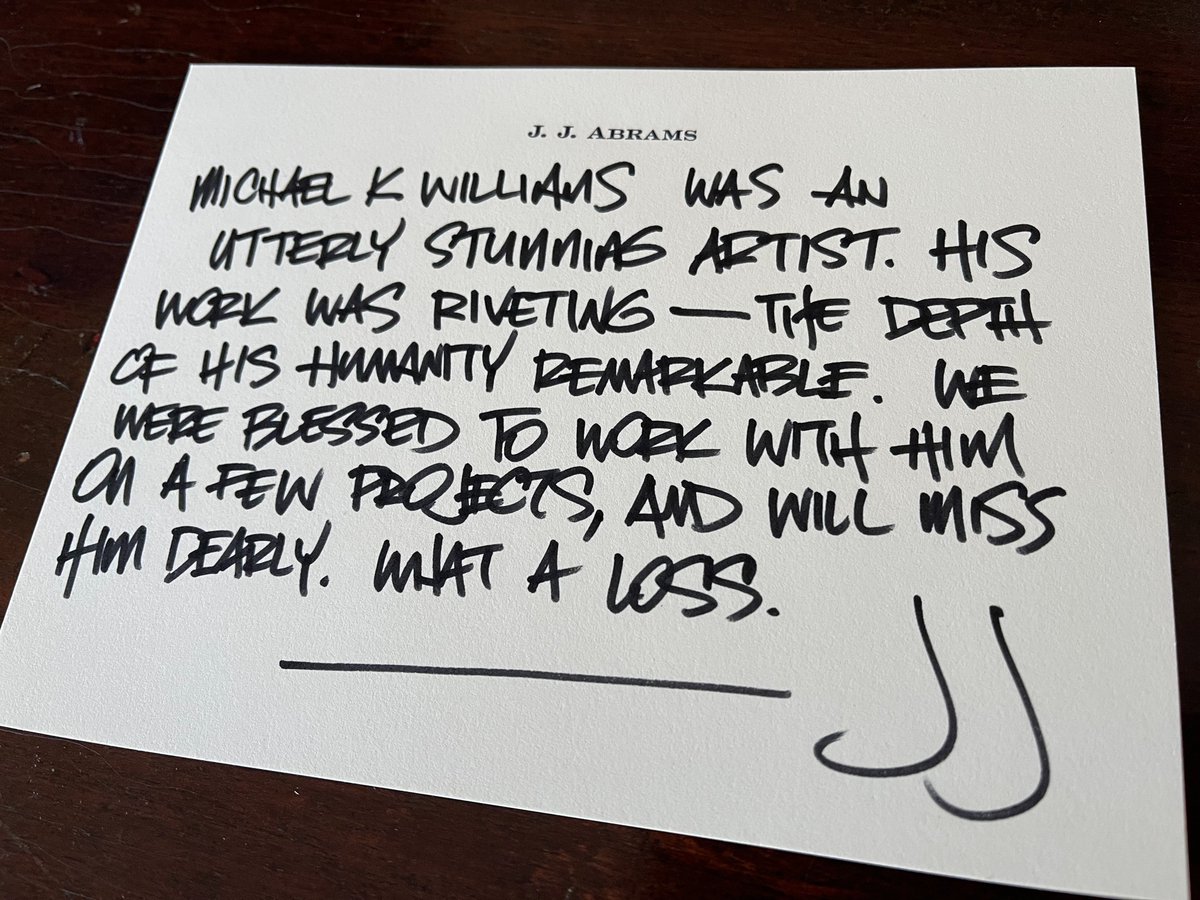 J. J. ABRAMS
MICHAEL K WILLIAMS WAS AN
UTTERLY STUNNING ARTIST. HIS
WORK WAS RIVETING — THE DEPTH
OF HIS HUMANITY REMARKABLE. WE
WERE BLESSED TO WORK WITH HIM
ON A FEW PROJECTS, AND WILL MISS
HIM DEARLY. WHAT A LOSS.
JJ